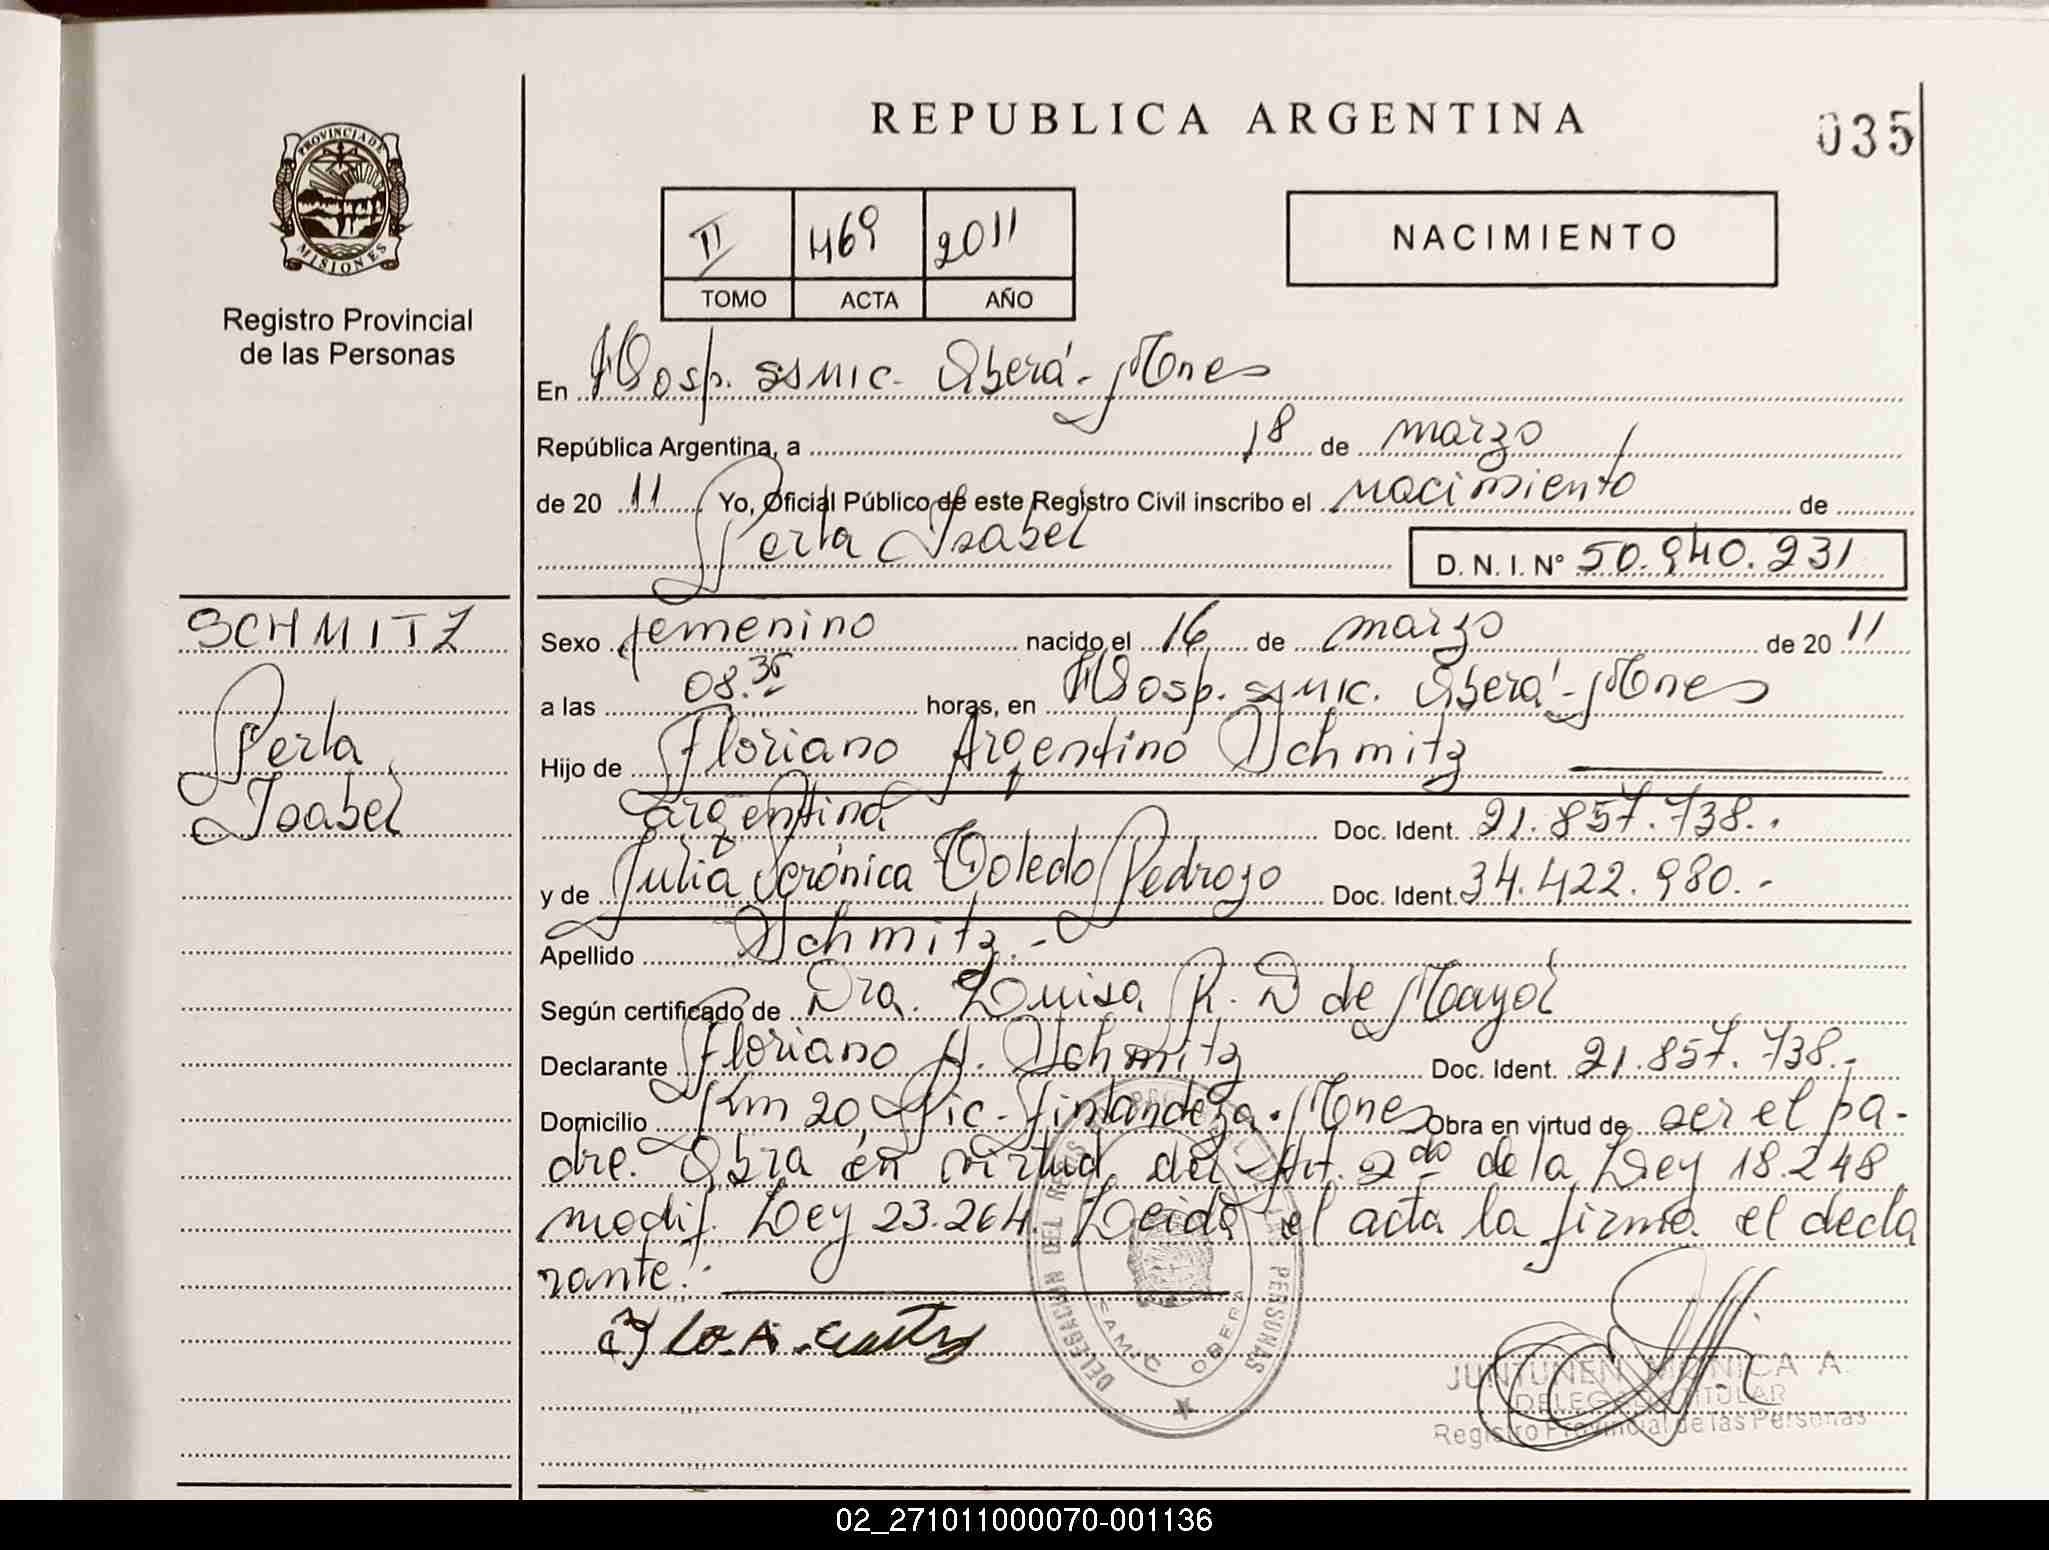 REPUBLICA ARGENTINA
035
PROVINCIA DE
MISIONES
Registro Provincial
de las Personas
II 469 2011
TOMO ACTA AÑO
NACIMIENTO
En Hosp. SAMIC. Oberá - Mnes
República Argentina, a 18 de marzo
de 20 11 Yo, Oficial Público de este Registro Civil inscribo el nacimiento de
Perla Isabel
D. N. I. Nº 50.940.231
SCHMITZ
Perla
Isabel
Sexo femenino nacido el 16 de marzo de 20 11
a las 08.35 horas, en Hosp. SAMIC. Oberá - Mnes
Hijo de Floriano Argentino Schmitz
argentina Doc. Ident. 21.857.738.-
y de Julia Verónica Toledo Pedrozo Doc. Ident. 34.422.980.-
Apellido Schmitz.-
Según certificado de Dra. Luisa R. D de Mayol
Declarante Floriano A. Schmitz Doc. Ident. 21.857.738.-
Domicilio Km 20, Pic. Finlandeza. Mnes Obra en virtud de ser el pa-
dre. Obra en virtud del Art. 2do de la Ley 18.248
modif. Ley 23.264. Leido el acta la firma el decla
rante.-
DELEGACION DEL REG. PROVINCIAL DE LAS PERSONAS
SAMIC OBERA
JUNTUNEN MONICA A.
DELEGADA TITULAR
Registro Provincial de las Personas
02_271011000070-001136